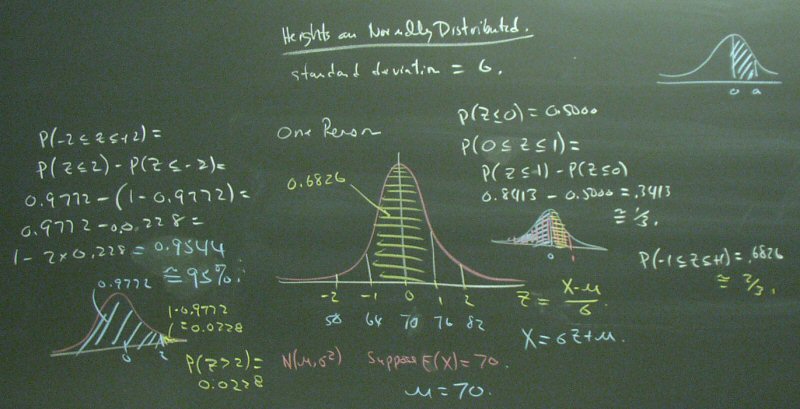 Heights are Normally Distributed.
standard deviation = 6.
0 a
P(-2 ≤ z ≤ +2) =
P(z ≤ 2) - P(z ≤ -2) =
0.9772 - (1 - 0.9772) =
0.9772 - 0.0.228 =
1 - 2 x 0.228 = 0.9544
≅ 95%.
0.9772
1-0.9772
= 0.0228
0 2
P(z > 2) =
0.0228
One Person
0.6826
-2 -1 0 1 2
58 64 70 76 82
N(μ, σ²) Suppose E(X) = 70.
μ = 70.
P(z ≤ 0) = 0.5000
P(0 ≤ z ≤ 1) =
P(z ≤ 1) - P(z ≤ 0)
0.8413 - 0.5000 = .3413
≅ 1/3.
0
P(-1 ≤ z ≤ +1) = .6826
≅ 2/3.
z = X-μ/σ
X = σz + μ.